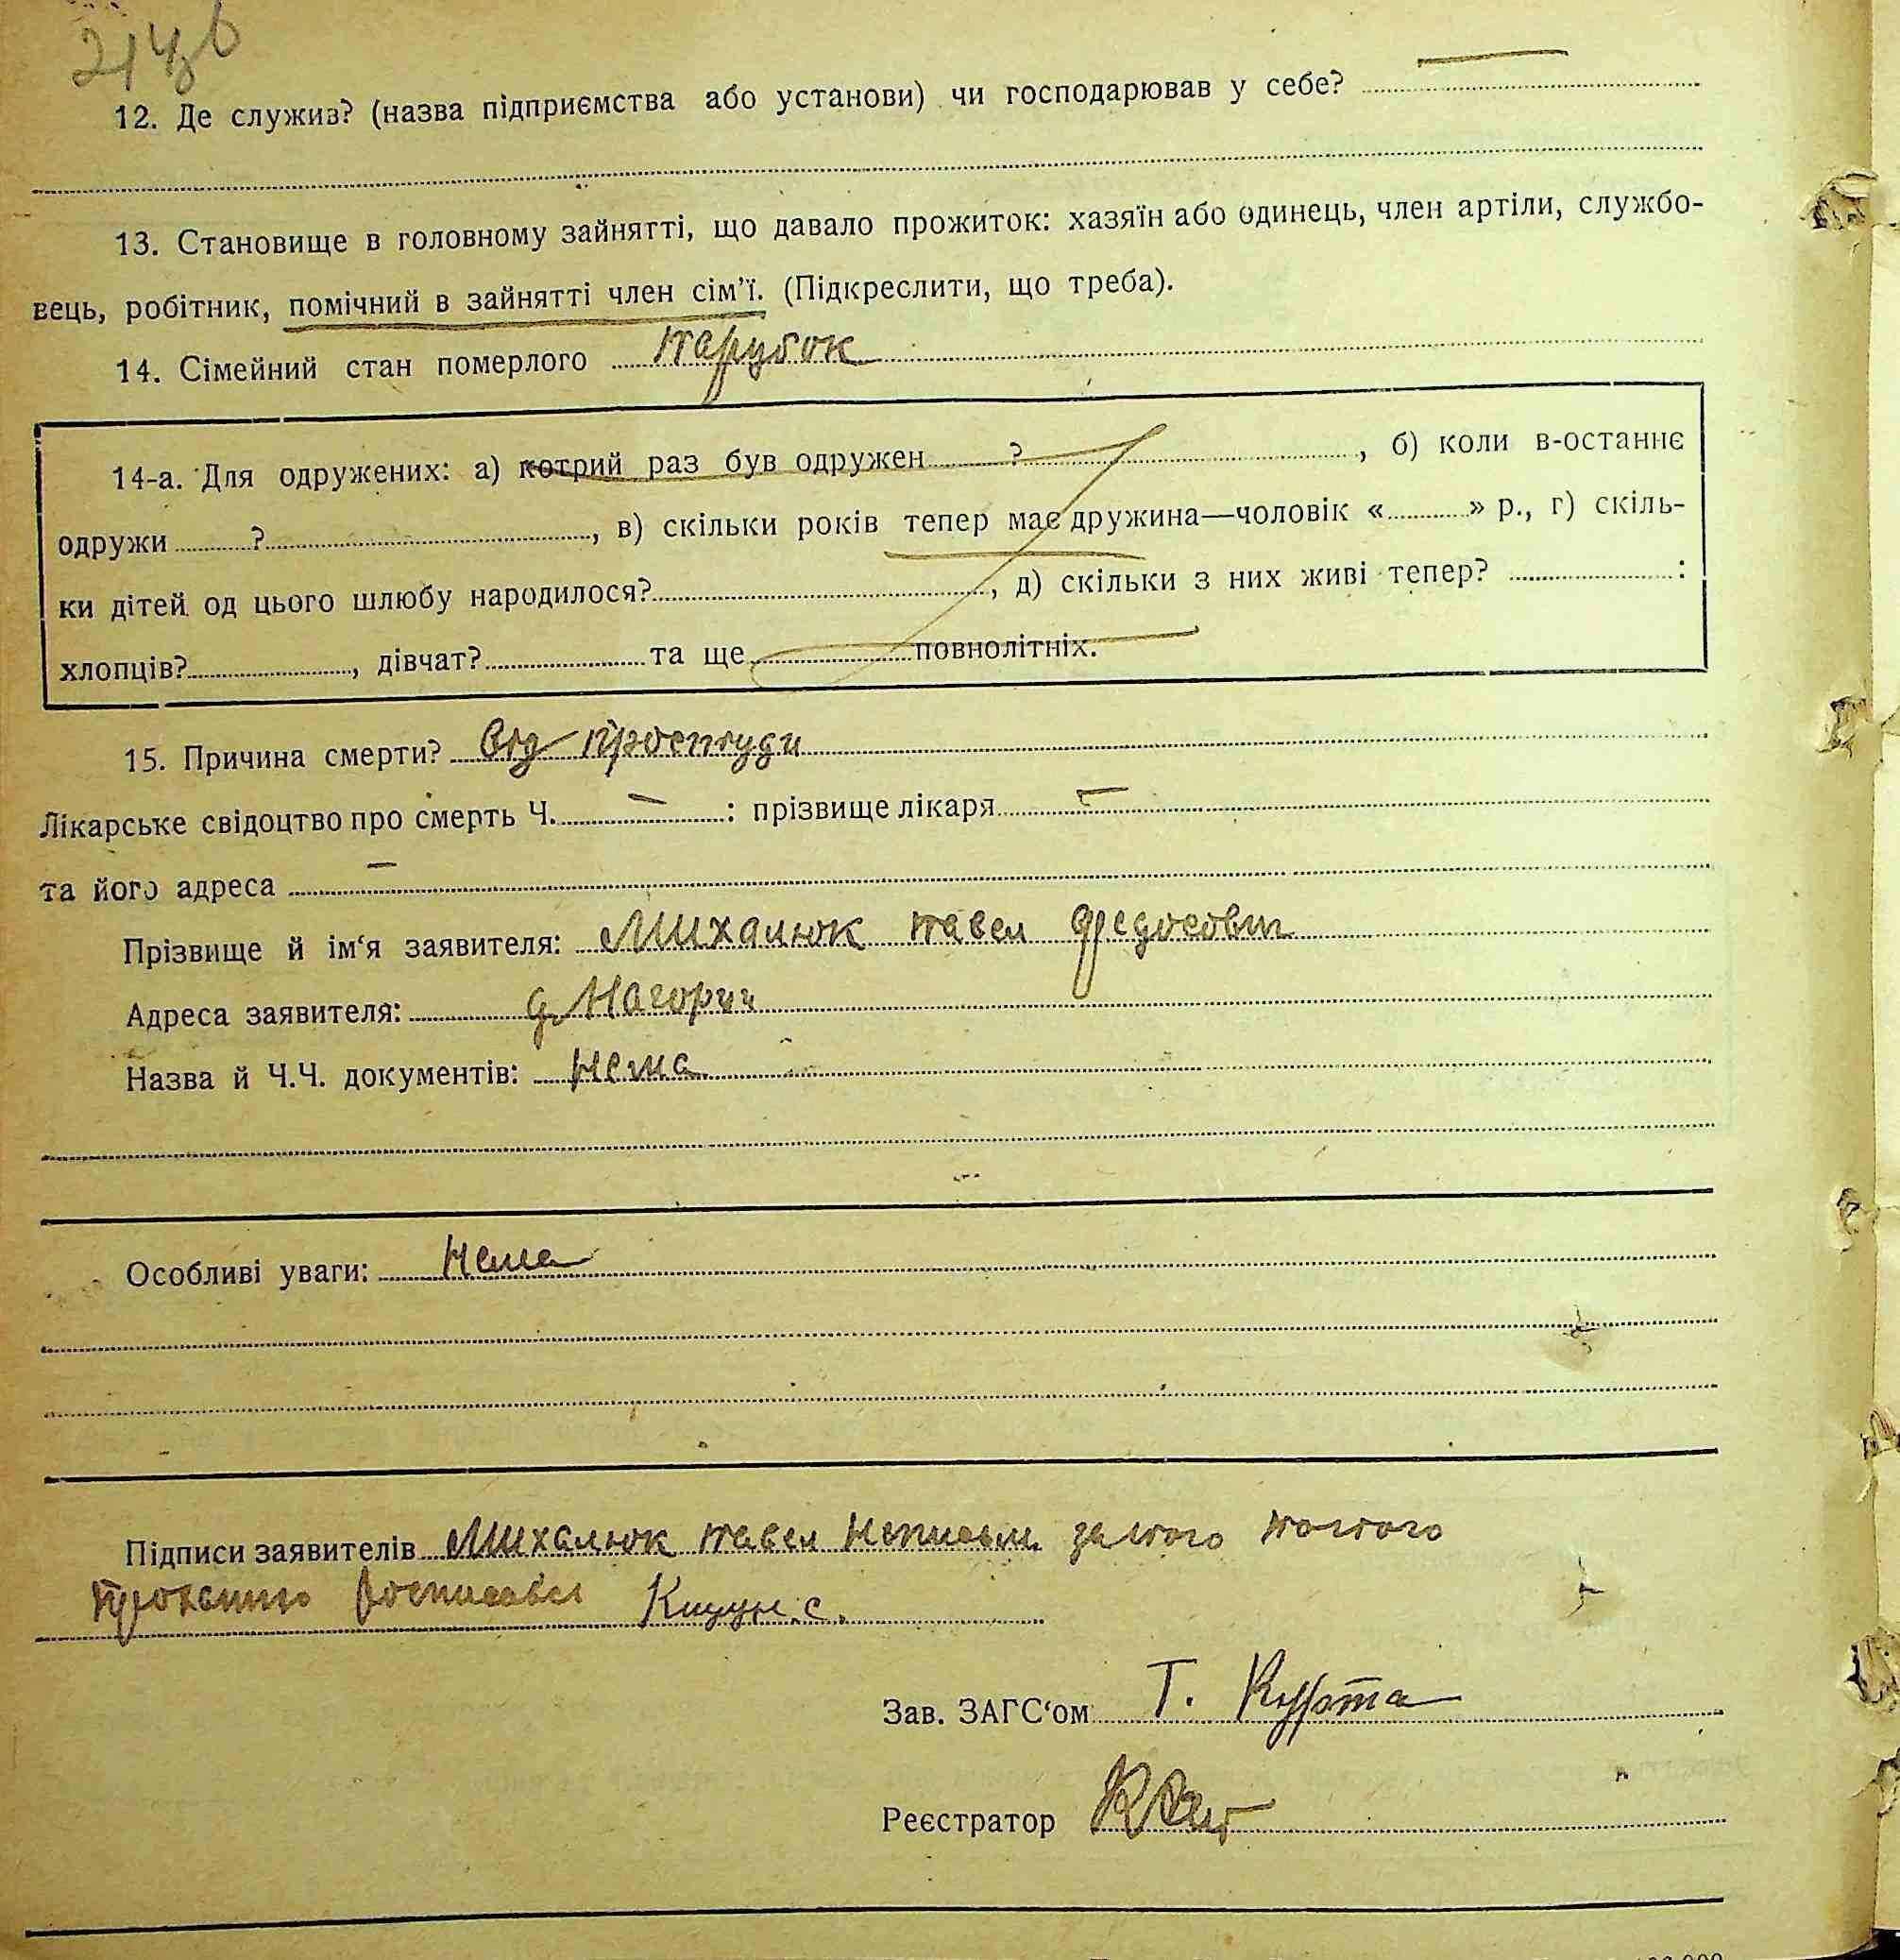 12. Де служив? (назва підприємства або установи) чи господарював у себе? —
13. Становище в головному зайнятті, що давало прожиток: хазяїн або одинець, член артіли, службо-
вець, робітник, помічний в зайнятті член сім’ї. (Підкреслити, що треба).
14. Сімейний стан померлого парубок
14-а. Для одружених: а) котрий раз був одружен ? , б) коли в-останнє
одружи ? , в) скільки років тепер має дружина—чоловік « » р., г) скіль-
ки дітей од цього шлюбу народилося? , д) скільки з них живі тепер? :
хлопців? , дівчат? та ще повнолітніх.
15. Причина смерти? Від простуди
Лікарське свідоцтво про смерть Ч. — : прізвище лікаря —
та його адреса —
Прізвище й ім‘я заявителя: Михалюк павел Федосович
Адреса заявителя: д. Нагорни
Назва й Ч.Ч. документів: нема
Особливі уваги: Нема
Підписи заявителів Михалюк павел Неписьм. за його
росписався с.
Зав. ЗАГС‘ом Т. Курта
Реєстратор